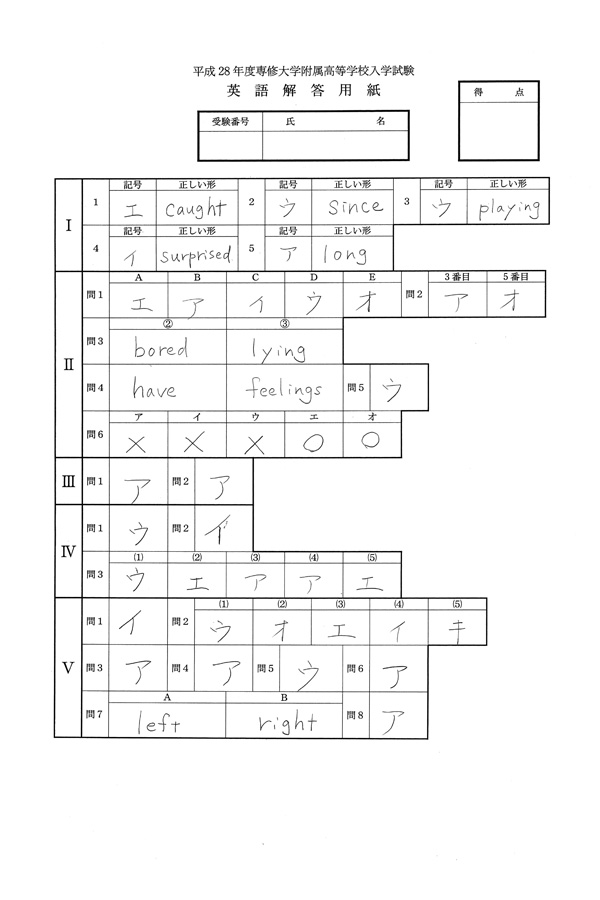 平成 28 年度専修大学附属高等学校入学試験
英語解答用紙
受験番号 氏 名
得 点
記号 正しい形 記号 正しい形 記号 正しい形
I 1 エ caught 2 ウ since 3 ウ playing
記号 正しい形 記号 正しい形
4 イ surprised 5 ア long
A B C D E 3番目 5番目
II 問1 エ ア イ ウ オ 問2 ア オ
② ③
問3 bored lying
問4 have feelings 問5 ウ
ア イ ウ エ オ
問6 × × × ○ ○
III 問1 ア 問2 ア
IV 問1 ウ 問2 イ
(1) (2) (3) (4) (5)
問3 ウ エ ア ア エ
(1) (2) (3) (4) (5)
V 問1 イ 問2 ウ オ エ イ キ
問3 ア 問4 ア 問5 ウ 問6 ア
A B
問7 left right 問8 ア